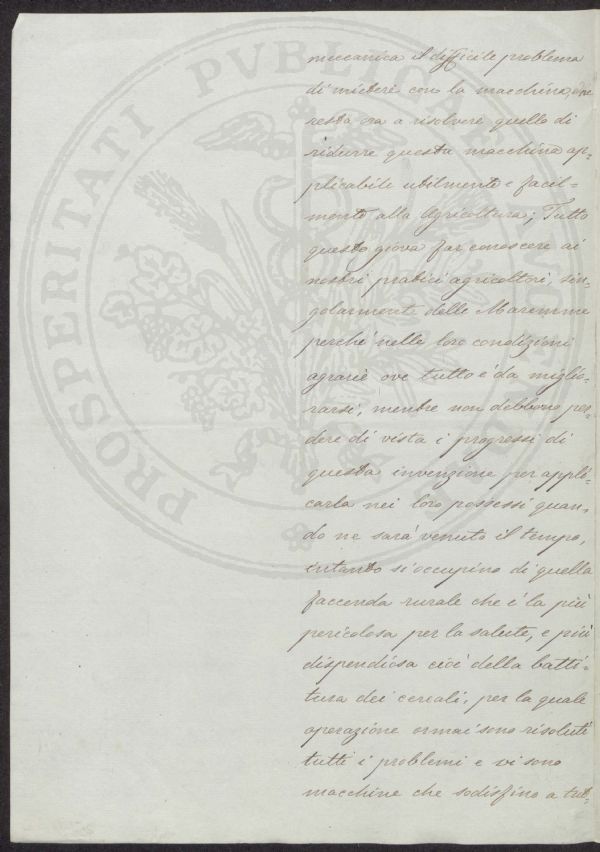 PROSPERITATI PVBLICAE
meccanica il difficile problema
di mietere con la macchina, ne
resta ora a risolvere quello di
ridurre questa macchina ap-
plicabile utilmente e facil-
mente alla Agricoltura; Tutto
questo giova far conoscere ai
nostri pratici agricoltori, sin-
golarmente delle Maremme
perché nelle loro condizioni
agrarie ove tutto è da miglio-
rarsi, mentre non debbono per-
dere di vista i progressi di
questa invenzione per appli-
carla nei loro possessi quan-
do ne sarà venuto il tempo,
intanto si occupino di quella
faccenda rurale che è la più
pericolosa per la salute, e più
dispendiosa cioè della batti-
tura dei cereali, per la quale
operazione ormai sono risoluti
tutti i problemi e vi sono
macchine che sodisfino a tut-